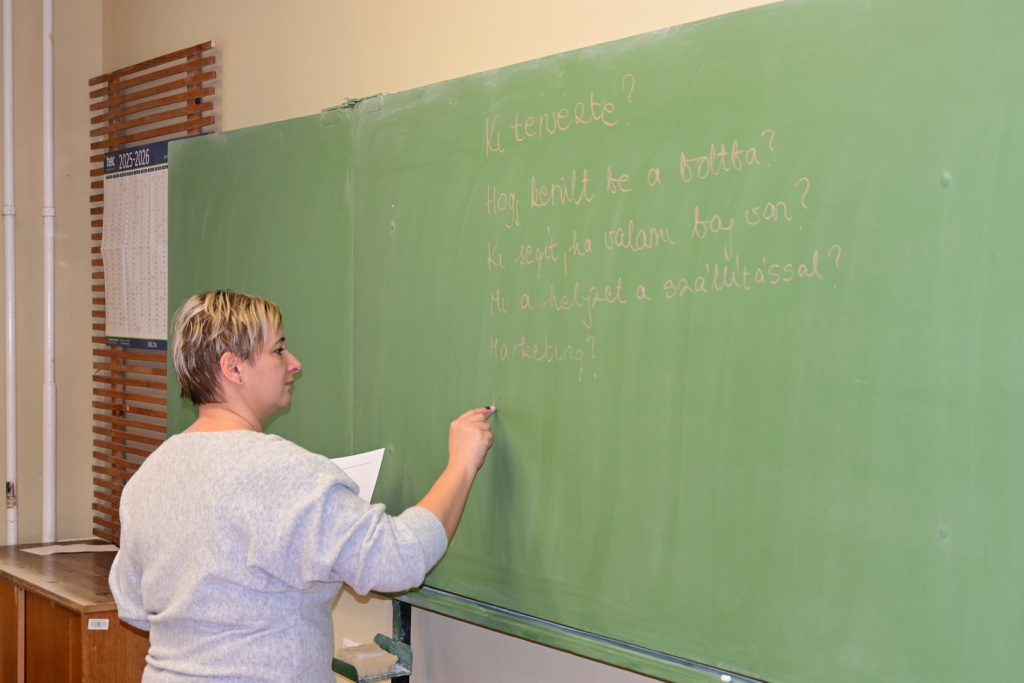 teic 2025-2026
Ki tervezte?
Hogy került be a boltba?
Ki segít, ha valami baj van?
Mi a helyzet a szállítással?
Marketing?